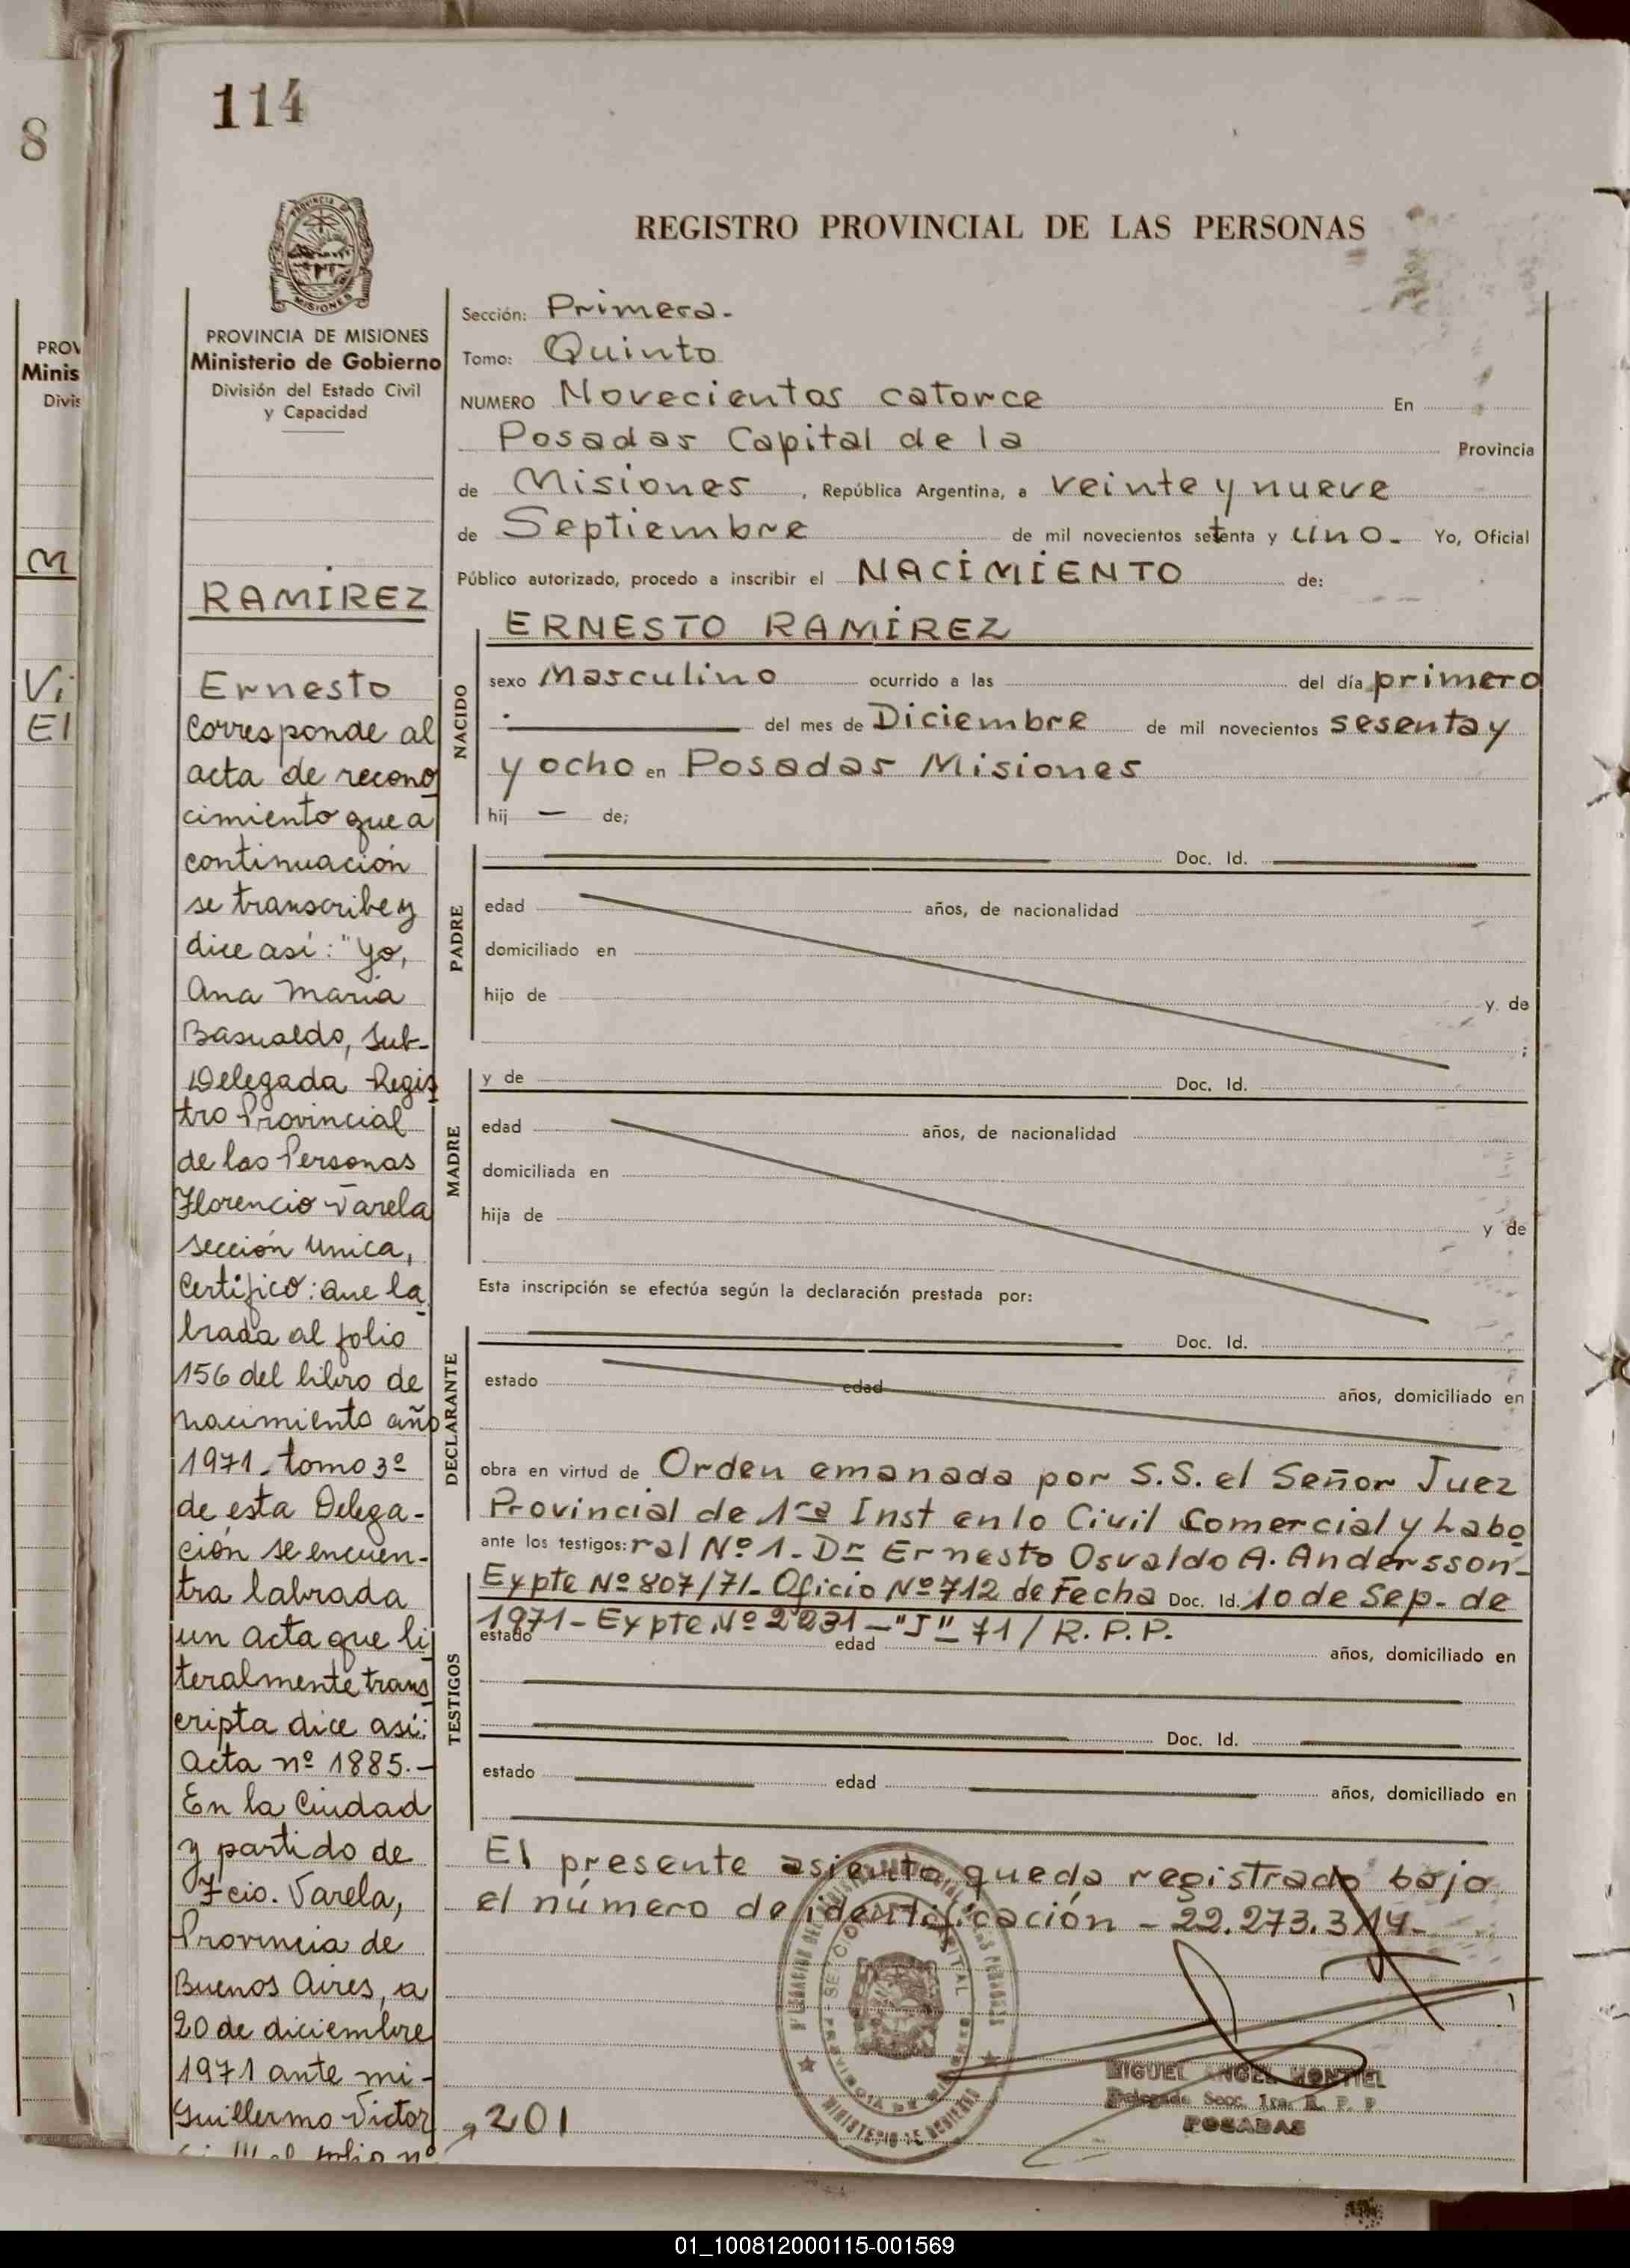 114
8
REGISTRO PROVINCIAL DE LAS PERSONAS
MISIONES
PROVINCIA DE MISIONES
Ministerio de Gobierno
División del Estado Civil
y Capacidad
PROV
Minis
Divis
M
Vi
El
RAMIREZ
Ernesto
Corresponde al
acta de recono
cimiento que a
continuación
se transcribe y
dice así: "Yo,
Ana Maria
Basualdo, Sub-
Delegada Regis
tro Provincial
de las Personas
Florencio Varela
sección Unica,
Certifico: Que la
brada al folio
156 del libro de
nacimiento año
1971 - tomo 3º
de esta Delega-
ción se encuen-
tra labrada
un acta que li
teralmente trans
cripta dice así:
Acta nº 1885.-
En la Ciudad
y partido de
Fcio. Varela,
Provincia de
Buenos Aires, a
20 de diciembre
1971 ante mi-
Guillermo Victor
al folio nº
201
Sección: Primera.-
Tomo: Quinto
NUMERO Novecientos catorce En
Posadas Capital de la Provincia
de Misiones, República Argentina, a veinte y nueve
de Septiembre de mil novecientos setenta y uno.- Yo, Oficial
Público autorizado, procedo a inscribir el NACIMIENTO de:
NACIDO
ERNESTO RAMIREZ
sexo Masculino ocurrido a las del día primero
del mes de Diciembre de mil novecientos sesenta y
y ocho en Posadas Misiones
hij — de;
PADRE
Doc. Id.
edad años, de nacionalidad
domiciliado en
hijo de y de
;
MADRE
y de Doc. Id.
edad años, de nacionalidad
domiciliada en
hija de y de
Esta inscripción se efectúa según la declaración prestada por:
DECLARANTE
Doc. Id.
estado edad años, domiciliado en
obra en virtud de Orden emanada por S.S. el Señor Juez
Provincial de 1ra Inst en lo Civil Comercial y Labo
ante los testigos: ral Nº 1- Dr Ernesto Osvaldo A. Andersson-
Expte Nº 807/71- Oficio Nº 712 de Fecha Doc. Id. 10 de Sep. de
1971- Expte Nº 2231-"J"- 71/ R.P.P.
estado edad años, domiciliado en
TESTIGOS
Doc. Id.
estado edad años, domiciliado en
El presente asiento queda registrado bajo
el número de identificación - 22.273.314-
MINISTERIO DE GOBIERNO
MIGUEL ANGEL MONTIEL
Delegado Secc. 1ra. R. P. P.
POSADAS
01_100812000115-001569